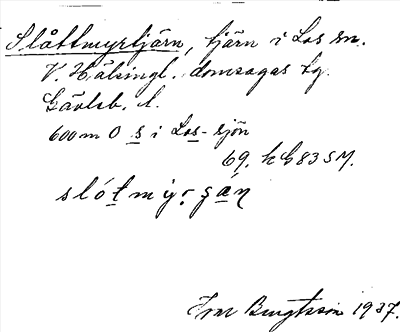 Slåttmyrtjärn, tjärn i Los sn.
V. Hälsingl. domsagas tg.
Gävleb. l.
600 m O s i Los-sjön
69. h G 83 SM.
slótmyrgán
Ivar Bengtsson 1937.